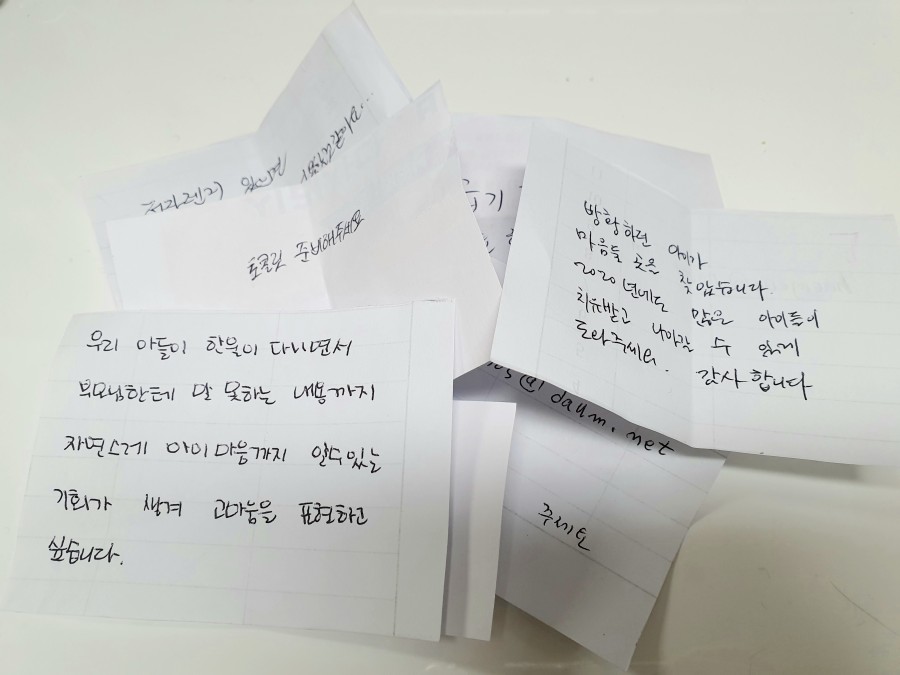 전자렌지 있으면
준비해주세요
방황하던 아이가
마음둘 곳을 찾았습니다.
2020년에도 많은 아이들이
치유받고 나아갈 수 있게
도와주세요. 감사합니다
우리 아들이 한울이 다니면서
부모님한테 말 못하는 내용까지
자연스레 아이 마음까지 알수있는
기회가 생겨 고마움을 표현하고
싶습니다.
@daum.net
주세요